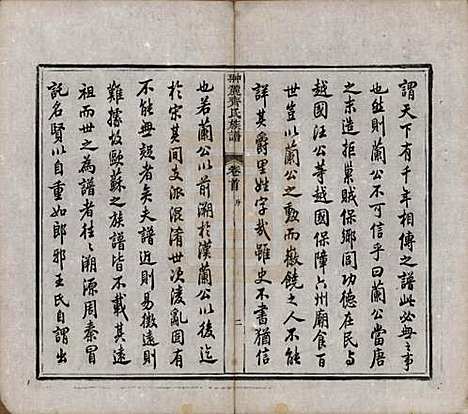 謂天下有千年相傳之譜此必無之事
也然則蘭公不可信乎曰蘭公當唐
之末造拒巢賊保鄉閭功德在民与
越國汪公等越國保障六州廟食百
世豈以蘭公之勲而徼饒之人不能
詳其爵里姓字哉雖史不書猶信
翀麓齊氏族譜
卷首
序
二
也若蘭公以前溯於漢蘭公以後迄
於宋其间支派混淆世次凌亂固有
不能無疑者矣夫譜近則易徵遠則
難據故歐蘇之族譜皆不載其遠
祖而世之為譜者往々溯源周秦冒
託名賢以自重如郎邪王氏自謂出